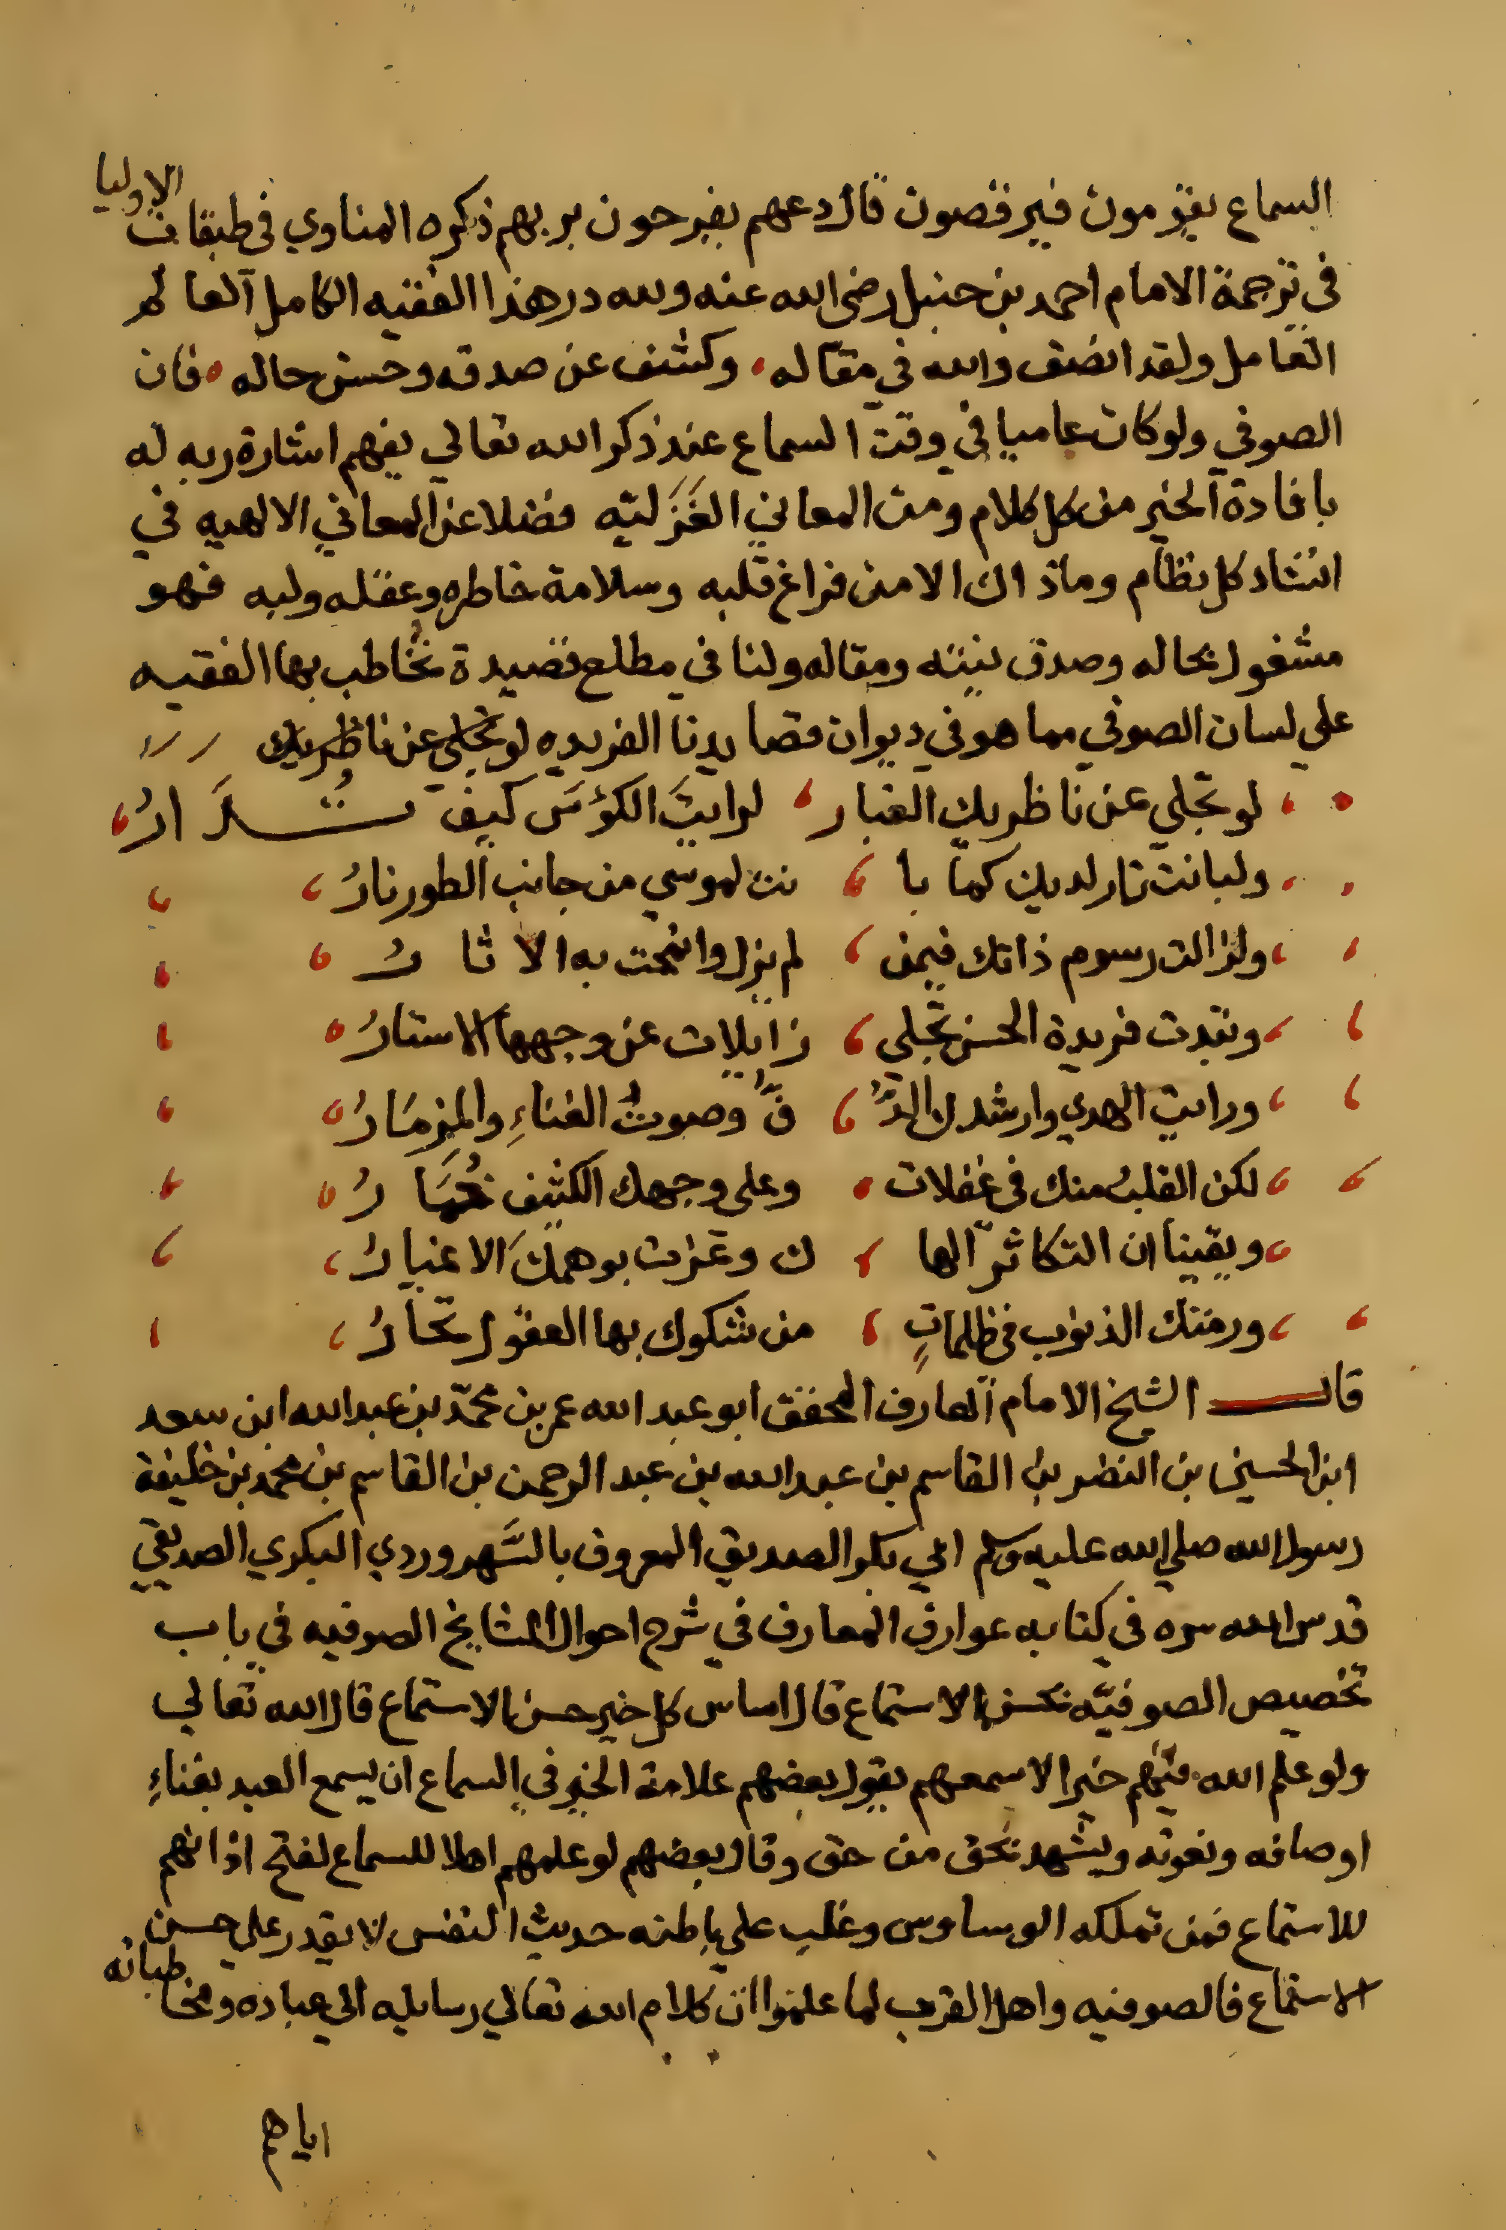 السماع يقومون فيرقصون قال دعهم يفرحون بربهم ذكره المناوي في طبقات الاوليا
في ترجمة الامام احمد بن حنبل رضي الله عنه ولله در هذا الفقيه الكامل العالم
العامل ولقد انصف والله في مقاله، وكشف عن صدقه وحسن حاله، فان
الصوفي ولو كان عاميا في وقت السماع عند ذكر الله تعالي يفهم اشارة ربه له
بافادة الخير من كل كلام ومن المعاني الغَزَليّه فضلا عن المعاني الالهيه في
انشاد كل نظام وما ذاك الا من فراغ قلبه وسلامة خاطره وعقله ولبه فهو
مشغول بحاله وصدق نيته ومقاله ولنا في مطلع قصيدة نخاطب بها الفقيه
علي لسان الصوفي مما هو في ديوان قصايدنا الفريده لو تجلي عن ناظريك
لو تجلي عن ناظريك الغبار، لرايتَ الكؤسَ كيف تُدَارُ،
ولبانت نار لديك كما با، نت لموسي من جانب الطور نارُ،
ولزالت رسوم ذاتك فيمن، لم يزل وانمحت به الاثارُ،
وتبدت فريدة الحسن تجلي، زايلات عن وجهها الاستارُ،
ورايت الهدي وارشدك الدُّ، فُّ وصوتُ الغناءِ والمزمَارُ،
لكن القلبُ منك في غفلات، وعلي وجهك الكثيف خُمَارُ،
ويقينا ان التكاثر الها، ك وغرت بوهمكَ الاغيارُ،
ورمتك الذنوب في ظلماتٍ، من شكوك بها العقول تحارُ،
قال الشيخ الامام العارف المحقق ابو عبد الله عمر بن محمّد بن عبد الله ابن سعد
ابن الحسين بن النضر بن القاسم بن عبد الله بن عبد الرحمن بن القاسم بن محمد بن خليفة
رسول الله صلي الله عليه وسلم ابي بكر الصديق المعروف بالسَّهروردي البكري الصديقي
قدس الله سره في كتابه عوارف المعارف في شرح احوال المشايخ الصوفيه في باب
تخصيص الصوفيّه بحسن الاستماع قال اساس كل خير حسن الاستماع قال الله تعالي
ولو علم الله فيهم خيرا لاسمعهم يقول بعضهم علامة الخير في السماع ان يسمع العبد بفناءِ
اوصافه ونعوته ويشهد بحق من حق وقال بعضهم لو علمهم اهلا للسماع لفتح اذانهم
للاستماع فمن تملكه الوساوس وغلب علي باطنه حديث النفس لا يقدر علي حسن
الاستماع فالصوفيه واهل القرب لما علموا ان كلام الله تعالي رسايله الي عباده ومخاطباته
اياهم